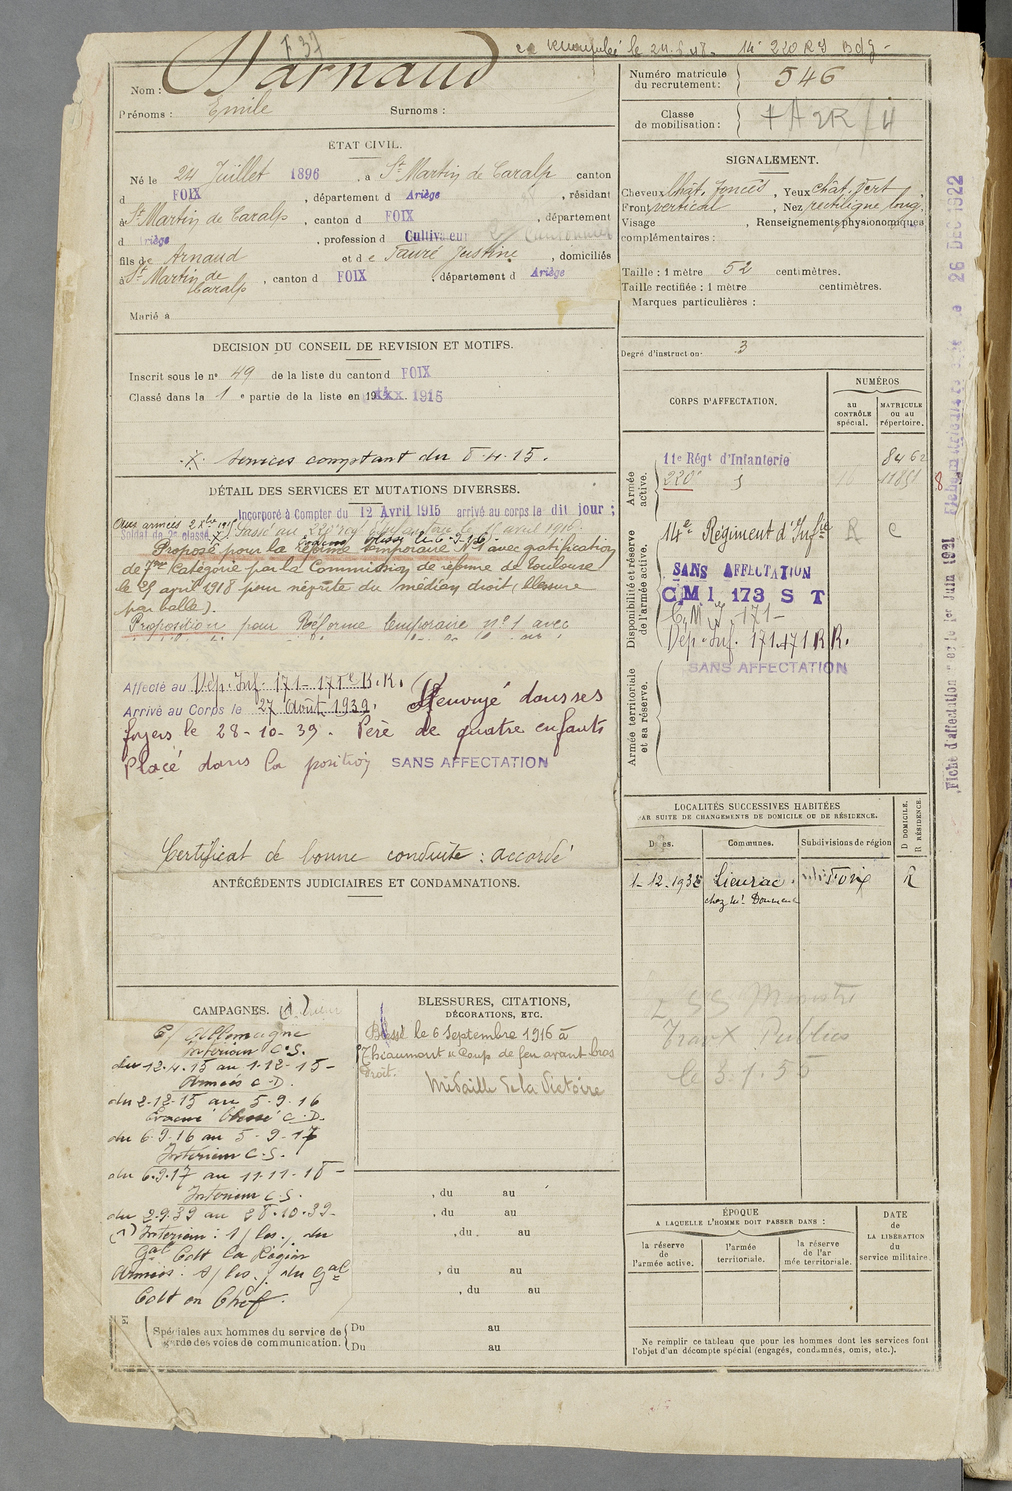 F 37
le 24.8.48.
Nom : Darnaud
Prénoms : Emile Surnoms :
ÉTAT CIVIL.
Né le 24 Juillet 1896, à St Martin de Caralp canton
d FOIX, département d Ariège, résidant
à St Martin de Caralp, canton d FOIX, département
d Ariège, profession d Cultivateur Cantonnier
fils de Arnaud et d e Fauré Justine, domiciliés
à St Martin de Caralp, canton d FOIX, département d Ariège
Marié à
DECISION DU CONSEIL DE REVISION ET MOTIFS.
Inscrit sous le n° 49 de la liste du canton d FOIX
Classé dans la 1 e partie de la liste en 19 1915
X Services comptant du 8.4.15.
DÉTAIL DES SERVICES ET MUTATIONS DIVERSES.
Incorporé à Compter du 12 Avril 1915 arrivé au corps le dit jour ;
Soldat de 2e classe
Passé au 220e reg Infanterie le 11 avril 1916.
Proposé pour la réforme temporaire N° 1 avec gratification
de 7me Catégorie par la Commission de réforme de Toulouse
le 25 avril 1918 pour névrite du médian droit (blessure
par balle).
Proposition pour Réforme temporaire n° 1 avec
Affecté au Dép. Inf. 171 - 171e R.R.
Arrivé au Corps le 27 Août 1939. Renvoyé dans ses
foyers le 28-10-39. Père de quatre enfants
Placé dans la position SANS AFFECTATION
Certificat de bonne conduite : accordé
ANTÉCÉDENTS JUDICIAIRES ET CONDAMNATIONS.
CAMPAGNES.
C/ Allemagne
Intérieur C.S.
du 12.4.15 au 1.12.15-
Armées C.D.
du 2-12-15 au 5.9.16
Evacué blessé C.D.
du 6.9.16 au 5-9-17
Intérieur C.S.
du 6.9.17 au 11.11-18-
Intérieur C.S.
du 2.9.39 au 28.10.39-
(1) Intérieur : s/ les . du
Gal Cdt la Région
Armées : s/ les . du Gal
Cdt en Chef.
Spéciales aux hommes du service de garde des voies de communication. Du au
Du au
BLESSURES, CITATIONS,
DÉCORATIONS, ETC.
Blessé le 6 Septembre 1916 à
Thiaumont "Coup de feu avant bras
droit.
Médaille de la Victoire
, du au
, du au
, du au
, du au
, du au
Numéro matricule du recrutement : 546
Classe de mobilisation :
SIGNALEMENT.
Cheveux chât. foncés, Yeux chât. vert,
Front vertical, Nez rectiligne long,
Visage , Renseignements physionomiques
complémentaires :
Taille : 1 mètre 52 centimètres.
Taille rectifiée : 1 mètre centimètres.
Marques particulières :
Degré d'instruction 3
CORPS D'AFFECTATION.
NUMÉROS
au CONTRÔLE spécial.
MATRICULE ou au répertoire.
Armée active.
11e Régt d'Infanterie 8462
220e 11851
Disponibilité et réserve de l'armée active.
14e Régiment d'Infie R C
SANS AFFECTATION
CMI 173 S T
C.M. 171-
Dép. Inf. 171-171 R.R.
SANS AFFECTATION
Armée territoriale et sa réserve.
LOCALITÉS SUCCESSIVES HABITÉES
PAR SUITE DE CHANGEMENTS DE DOMICILE OU DE RÉSIDENCE.
Dates.
Communes.
Subdivisions de région
D DOMICILE.
R RÉSIDENCE.
1-12-1938 Lieurac. Foix R
Ministre
Travx Publics
le 3.1.55
ÉPOQUE
A LAQUELLE L'HOMME DOIT PASSER DANS :
la réserve de l'armée active.
l'armée territoriale.
la réserve de l'armée territoriale.
DATE
de
LA LIBÉRATION
du
service militaire.
Ne remplir ce tableau que pour les hommes dont les services font
l'objet d'un décompte spécial (engagés, condamnés, omis, etc.).
26 DEC 1922
Fiche d'affectation 1er Juin 1921